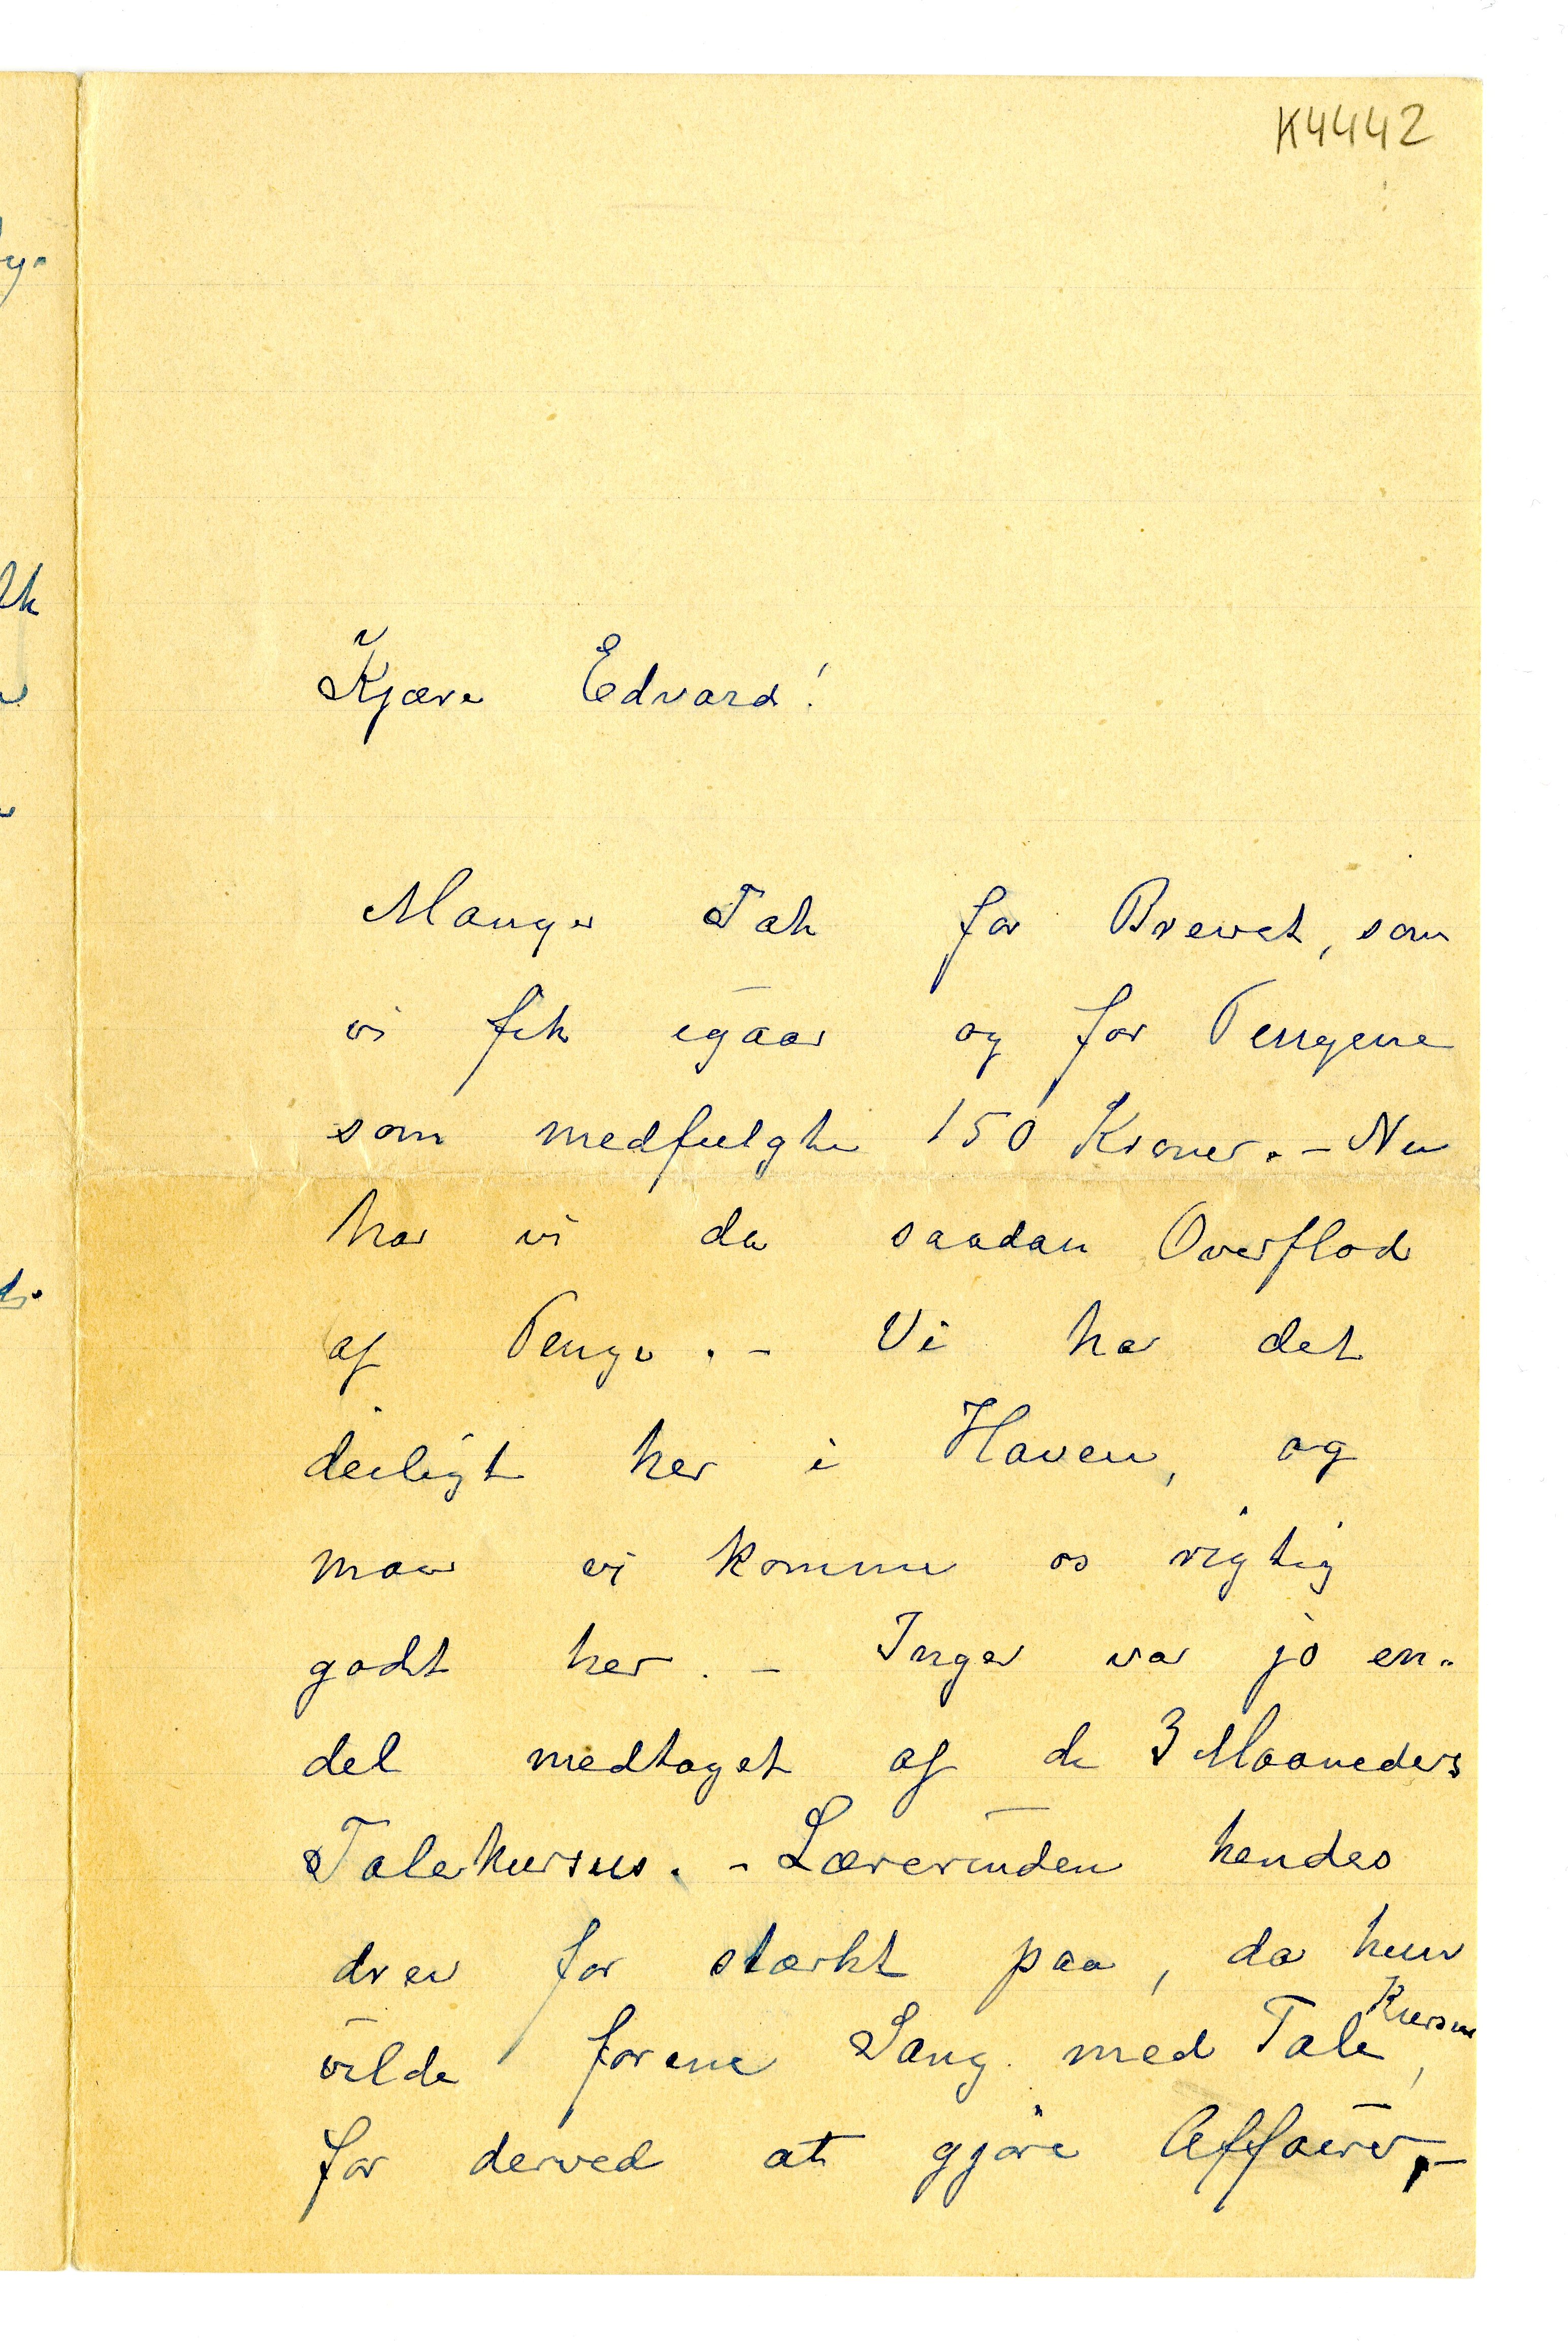 K4442
Kjære Edvard!
Mange Tak for Brevet, som
vi fik igaar og for Pengene
som medfulgte 150 Kroner. – Nu
har vi da saadan Overflod
af Penge. – Vi har det
deiligt her i Haven, og
maa vi komme os rigtig
godt her. – Inger var jo en-
del medtaget af de 3 Maaneders
Talekursus. – Lærerinden hendes
drev for stærkt paa, da hun
vilde forene Sang med Tale Kursus,
for derved at gjøre Affairer, –